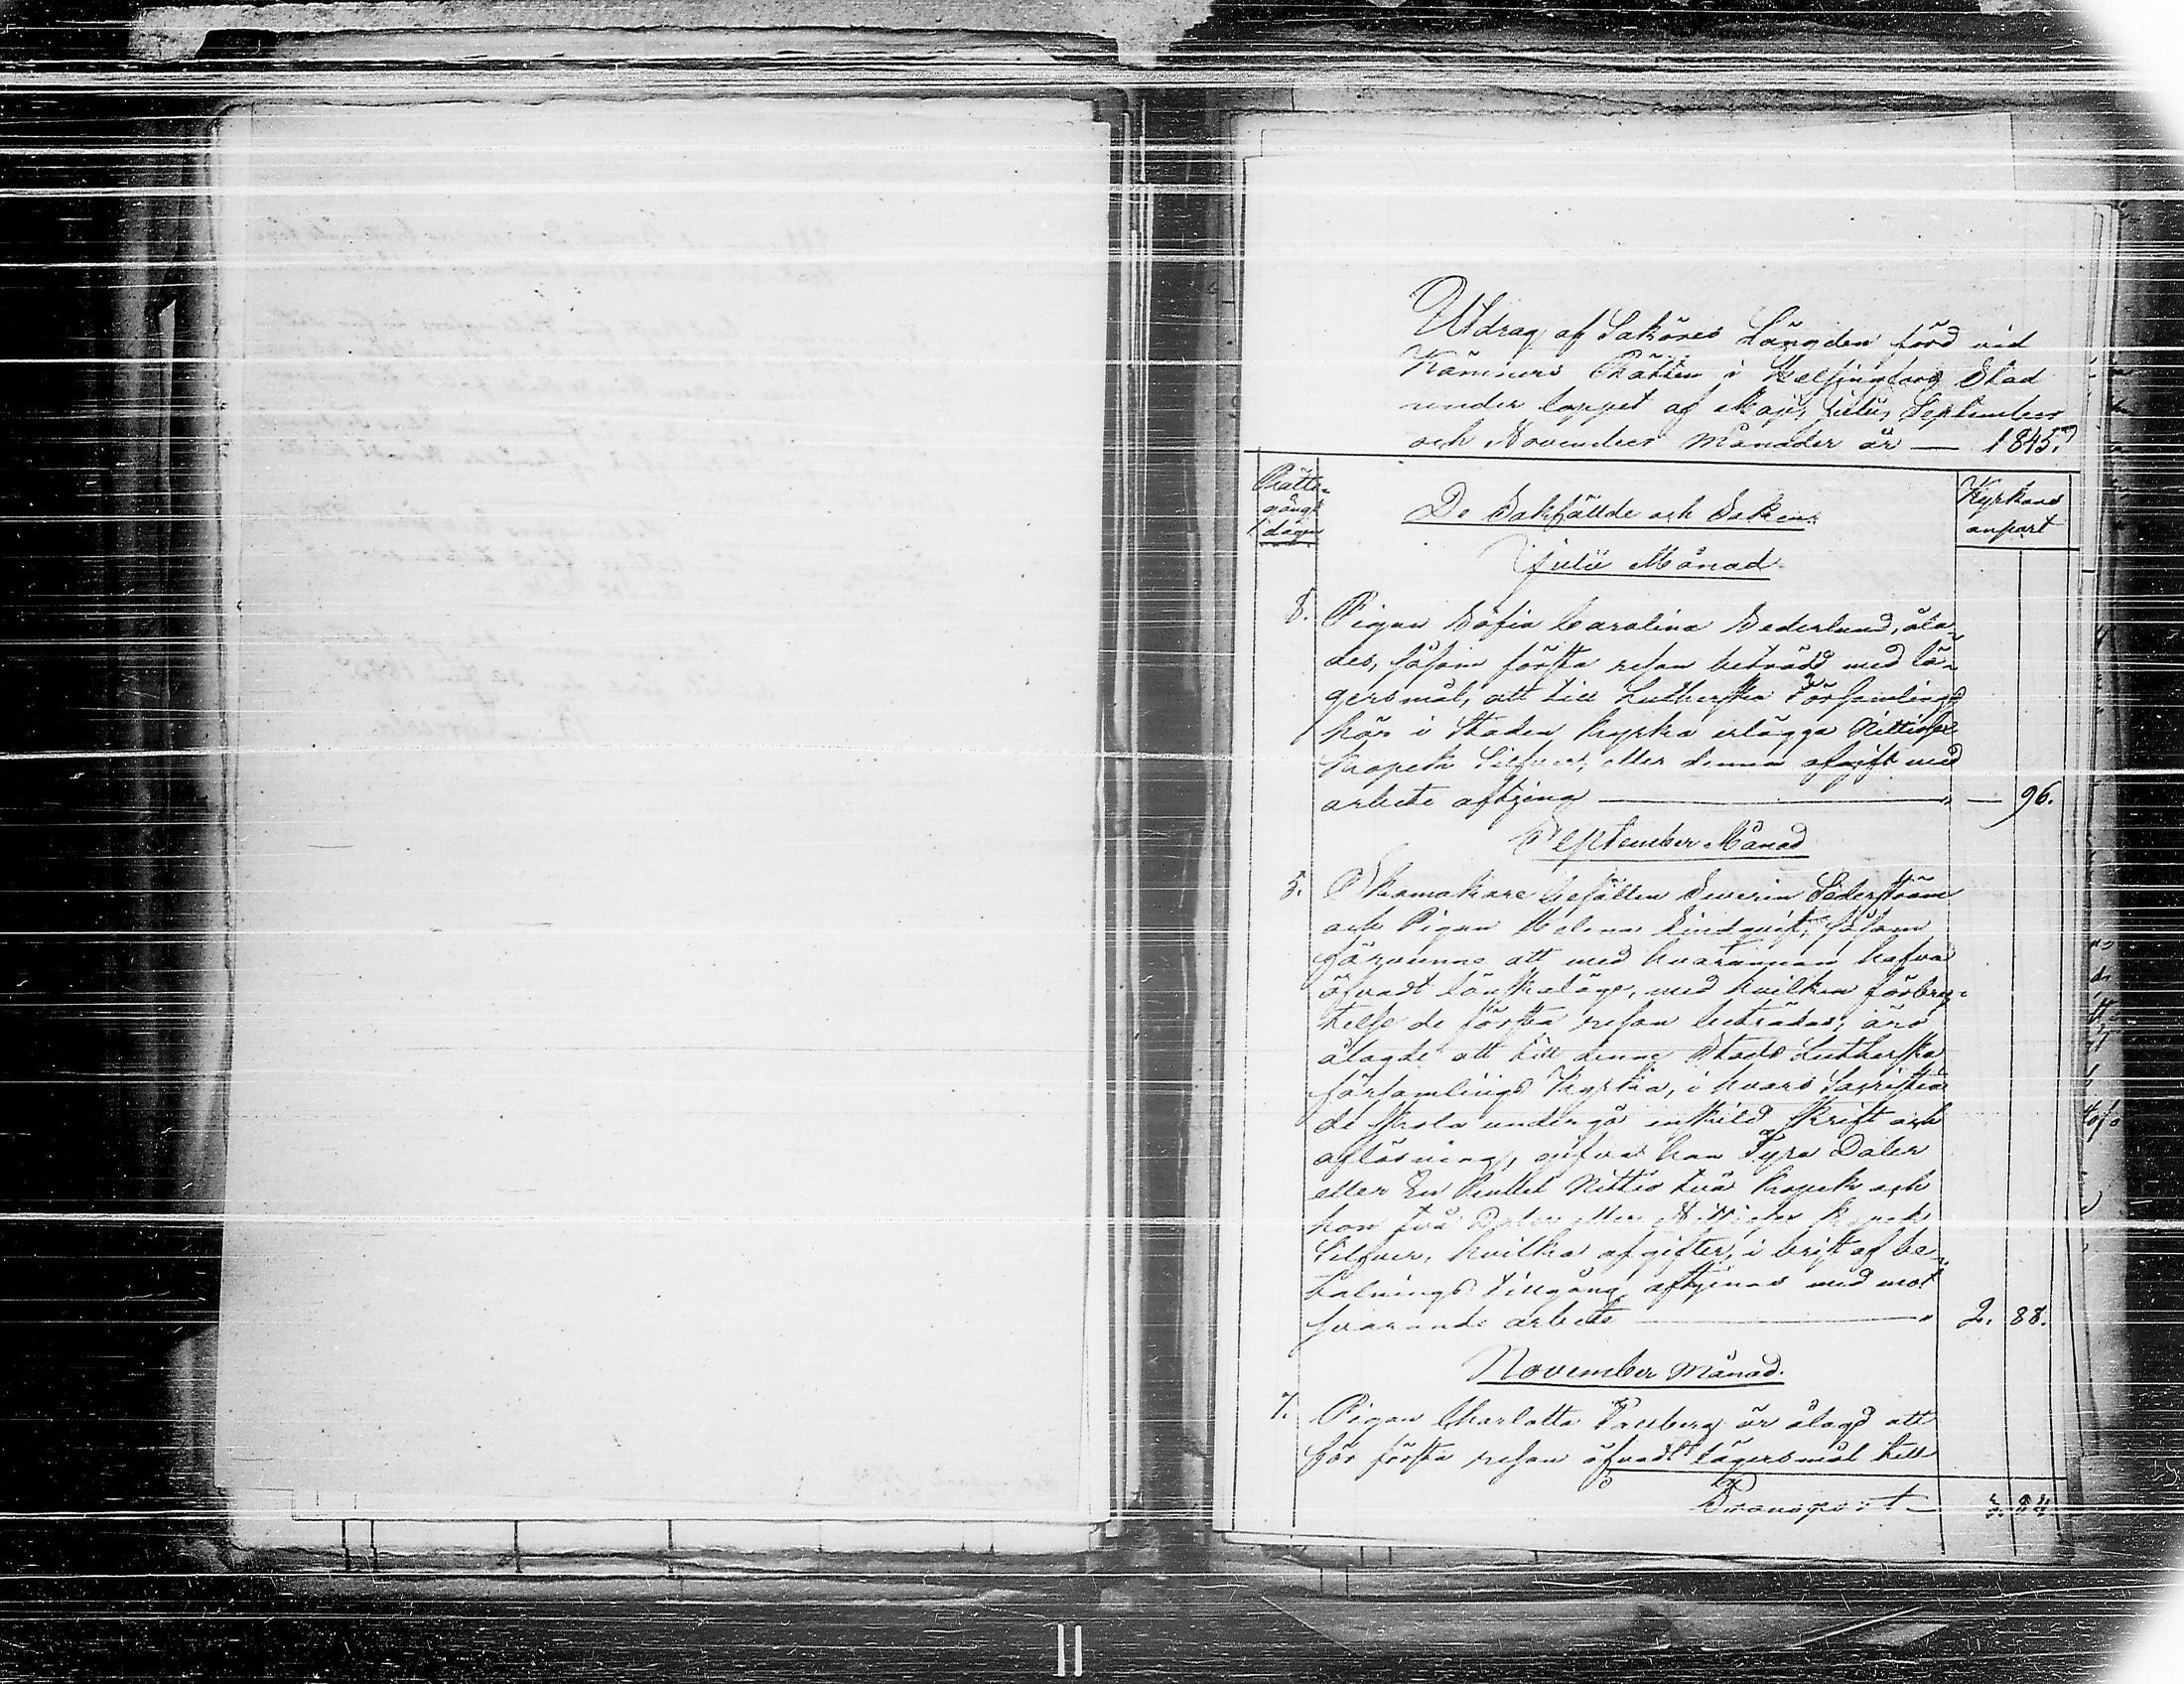 Utdrag af Saköres Längden förd vid
Kämners Rätten i Helsingfors Stad
under loppet af Maji, Julii, September
och November Månader år — 1845.
Rätte-
gångs
dagen
De Sakfällde och Saken.
Kyrkans
anpart
Julii Månad
8. Pigan Sofia Carolina Sederlund, åla-
des, såsom första resan beträdd med lä-
gersmål, att till Lutherska Församlings
här i Staden kyrka erlägga Nittiosex
kopek Silfver, eller denna afgift med
arbete aftjena — — 96.
September Månad
5. Skomakare Gesällen Severin Söderström
och Pigan Helena Lindqvist, såsom
förvunne att med hvarannan hafva
öfvadt lönskaläge, med hvilken förbry-
telse de första resan beträdas, äro
ålagde att till denne Stads Lutherska
församlings Kyrka, i hvars Sacristia
de skola undergå enskild skrift och
aflösning, gifva han Fyra Daler
eller En Rubel Nittio två kopek och
hon två Daler eller Nittiosex kopek
Silfver, hvilka afgifter, i brist af be-
talnings tillgång aftjenas med mot
svarande arbete — 2. 88.
November Månad.
7. Pigan Charlotta Friberg är ålagd att
för första resan öfvadt lägersmål till
Transport — 3. 84.